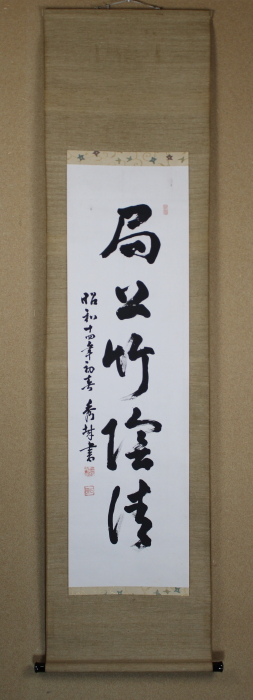 局上竹陰清
昭和十四年初春 秀 書